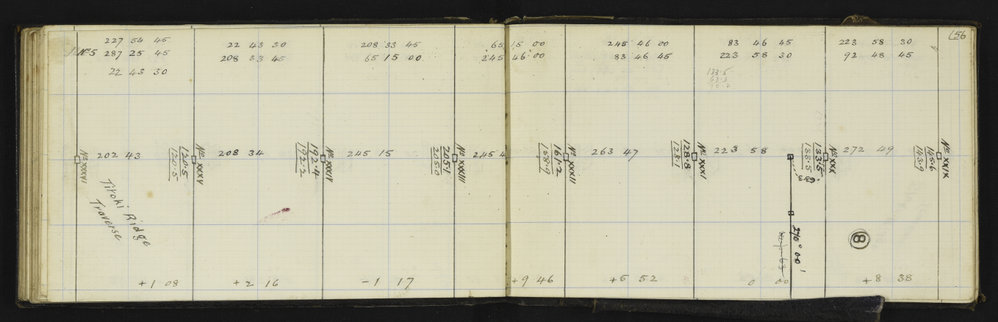 156
227 54 45 22 43 30 208 33 45 65 15 00 245 46 00 83 46 45 223 58 30
Nº5 287 25 45 208 33 45 65 15 00 245 46 00 83 46 45 223 58 30 92 48 45
22 43 30
133.5
Nº XXXVI 202 43 Nº XXXV 208 34 Nº XXXIV 245 15 Nº XXXIII 245 4 Nº XXXII 263 47 Nº XXXI 223 58 Nº XXX 272 49 Nº XXIX
120.5 192.4 205.1 161.2 128.8 133.5 145.6
120.5 192.2 205.0 158.9 128.1 133.5 143.9
Titoki Ridge
Traverse
270° 00'
8
+1 08 +2 16 -1 17 +9 46 +5 52 0 00 +8 38